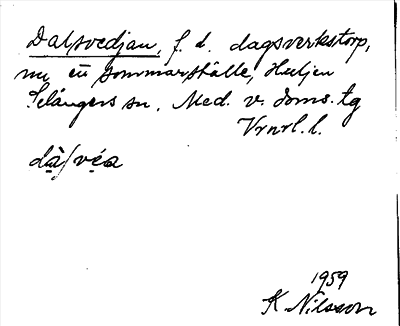 Dalsvedjan, f. d. dagsverkstorp,
nu en sommarställe, Huljen
Selångers sn. Med. v. doms. tg
Vrnrl. l.
dạ̀/vẹ́a
1959
K Nilsson